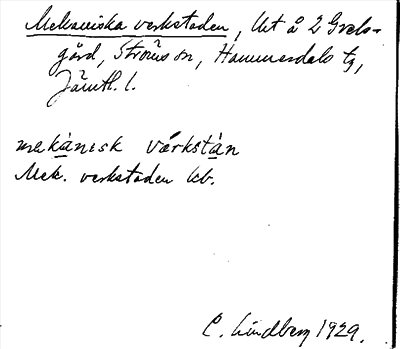 Mekaniska verkstaden, lht å 2 Grels-
gård, Ströms sn, Hammerdals tg,
Jämtl. l.
mekánısk vérkstàn
Mek. verkstaden kb.
C. Lindberg 1929.